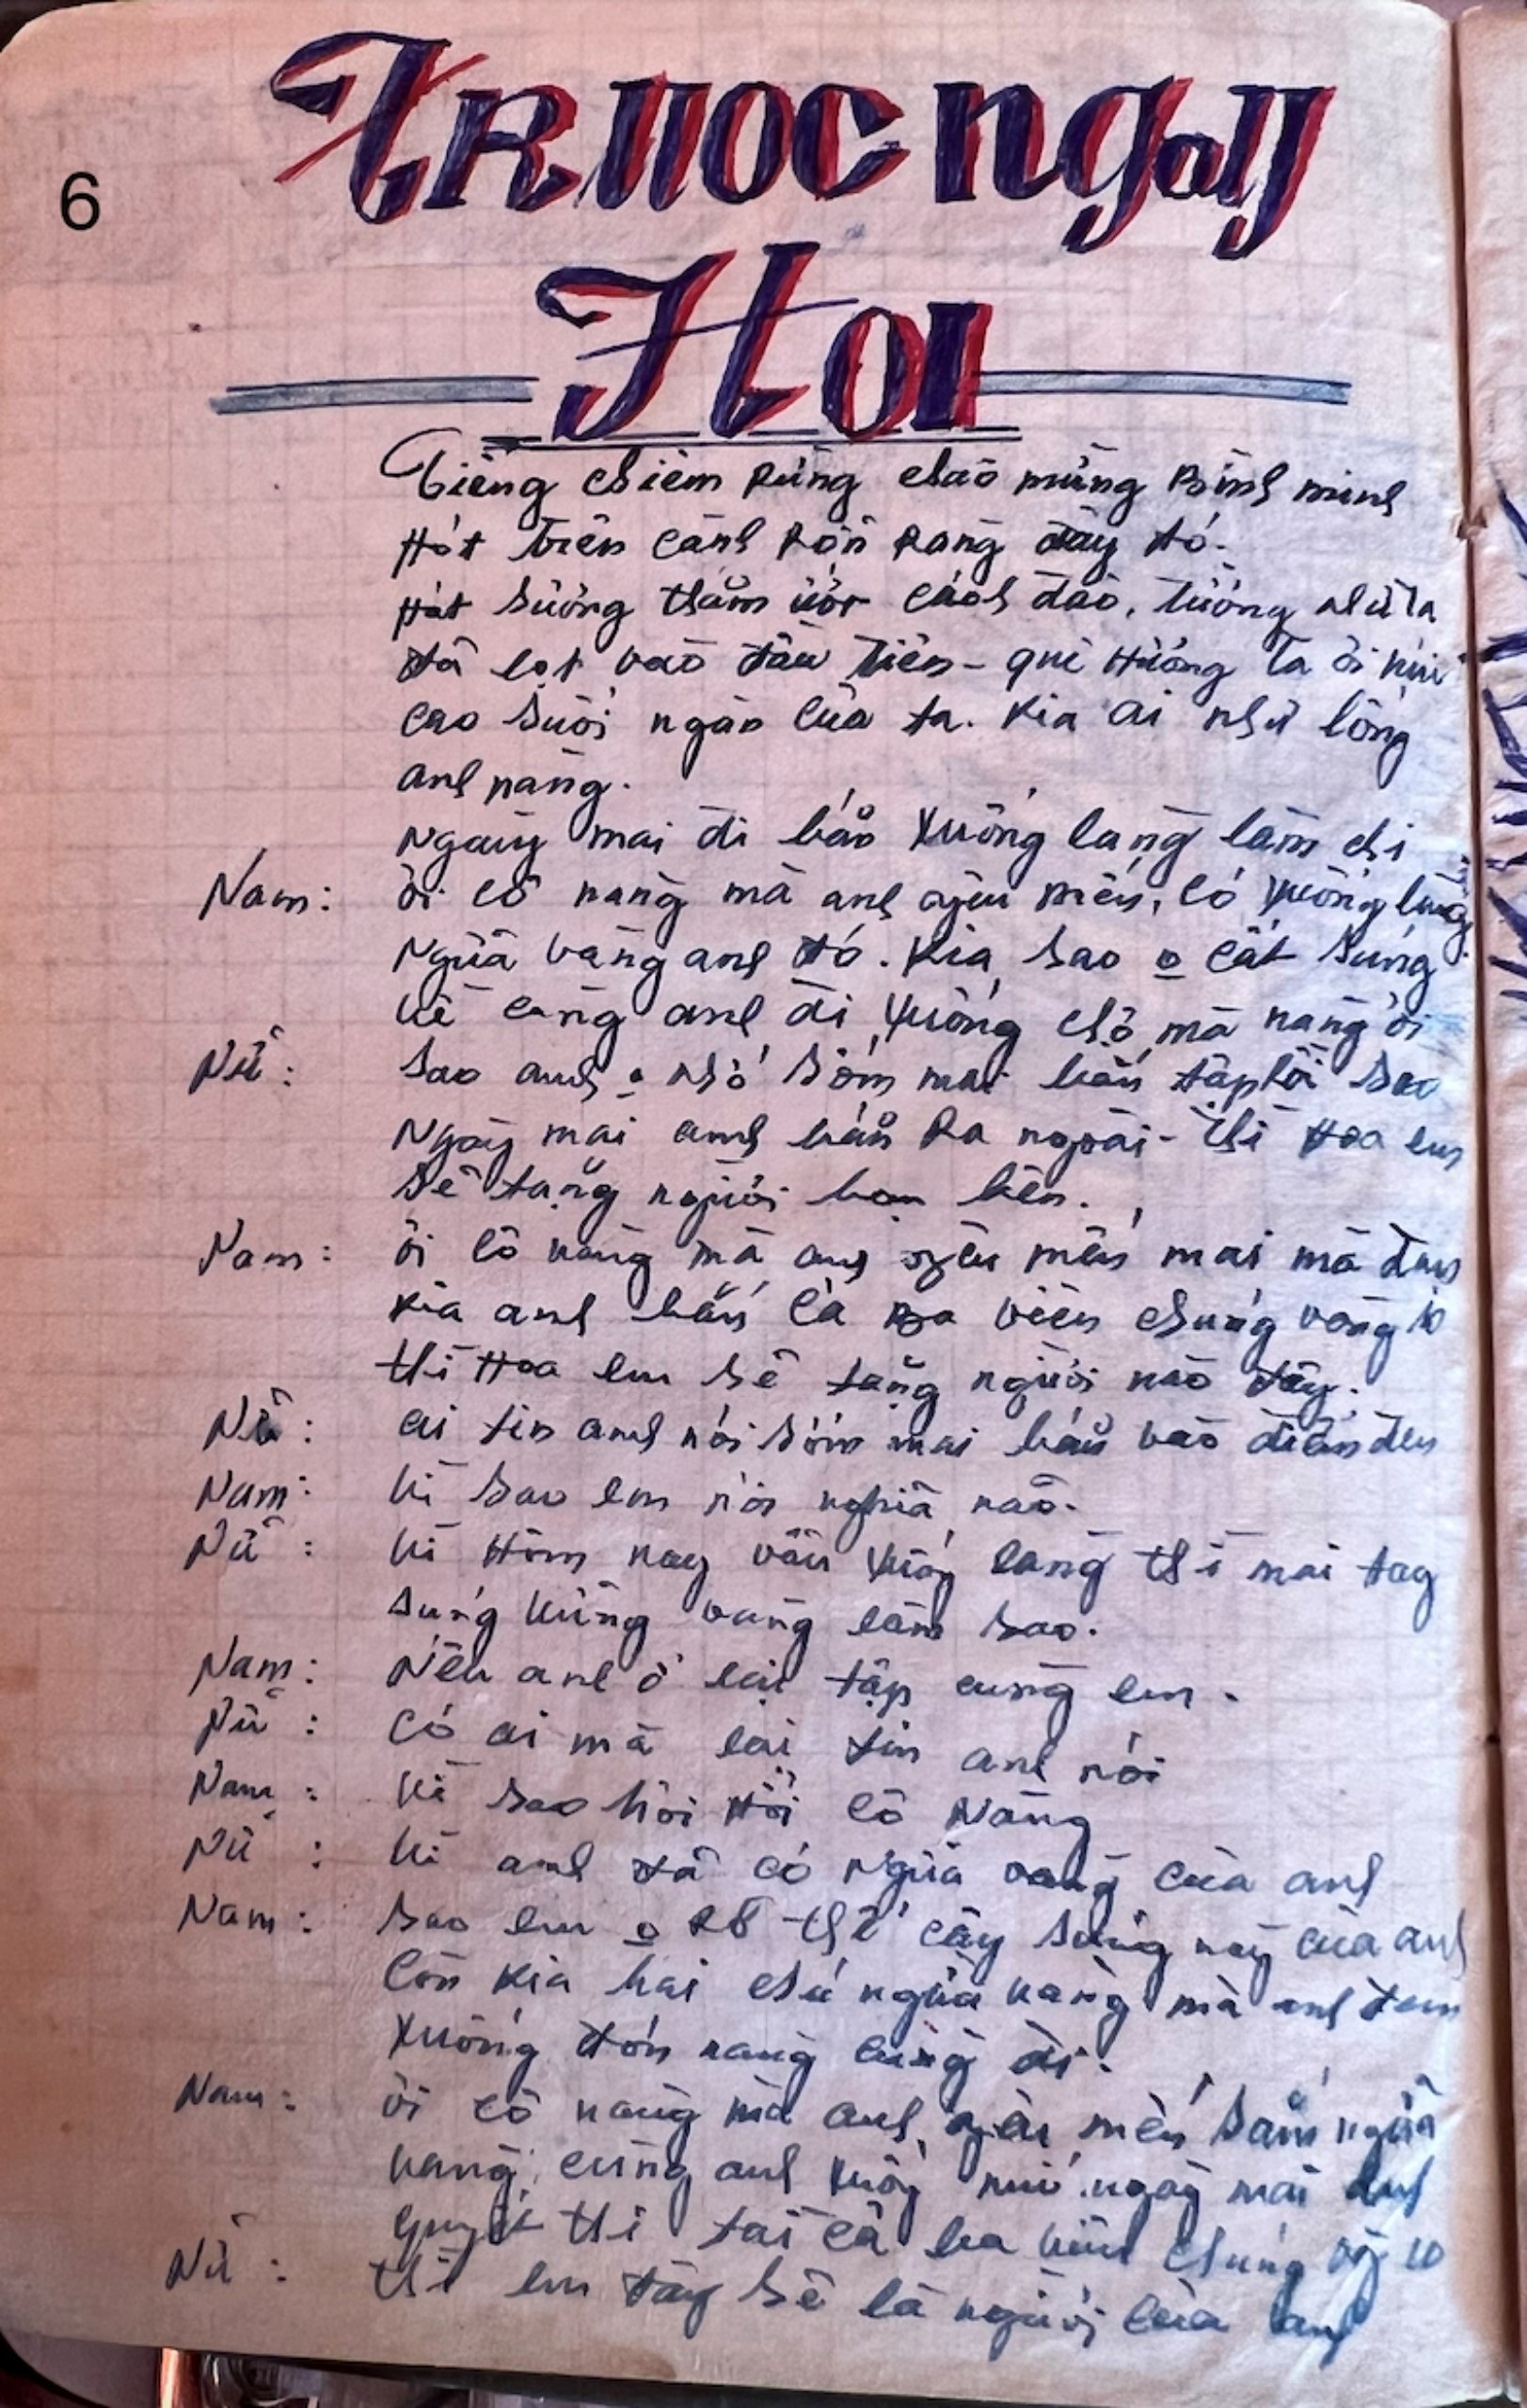 6
Trước ngày
Hội
Tiếng chiêm rừng chào mừng bình minh
Hót trên cành rộn ràng đây đó.
Hát sương thấm ướt cách đào, tưởng như ta
đã lọt vào đầu tiên - quê hương ta ơi núi
cao suối ngào của ta. Kia ai như lồng
anh nàng.
Ngày mai đi bắn xuống làng làm chi
Nam: ơi cô nàng mà anh yêu mến, có xuống làng
Ngựa vàng anh đó. Kia sao o cất súng
về cùng anh đi xuống chợ mà nàng ơi
Nữ: Sao anh o nhớ sớm mai bắn tập rồi sao
Ngày mai anh bắn ra ngoài - thì Hoa em
sẽ tặng người bạn bên.
Nam: ơi cô nàng mà anh yêu mến mai mà đem
kia anh bắn cả ba viên chúng vòng 10
thì Hoa em sẽ tặng người nào đây.
Nữ: ai tin anh nói sớm mai bắn vào điểm đen
Nam: Vì sao em nói nghĩa nào.
Nữ: Vì Hôm nay vẫn xuống làng thì mai tay
súng vững vàng làm sao.
Nam: Nếu anh ở lại tập cùng em.
Nữ: Có ai mà lại tin anh nói
Nam: Vì sao hỏi Hỡi cô Nàng
Nữ: Vì anh đã có ngựa vàng của anh
Nam: Sao em o rõ thế cây súng này của anh
Còn kia hai chú ngựa vàng mà anh đem
xuống đón nàng cùng đi.
Nam: ơi cô nàng mà anh yêu mến sắm ngựa
vàng cùng anh xuống núi. ngày mai anh
quyết thi tài cả ba viên chúng vòng 10
Nữ: thì em đây sẽ là người của anh